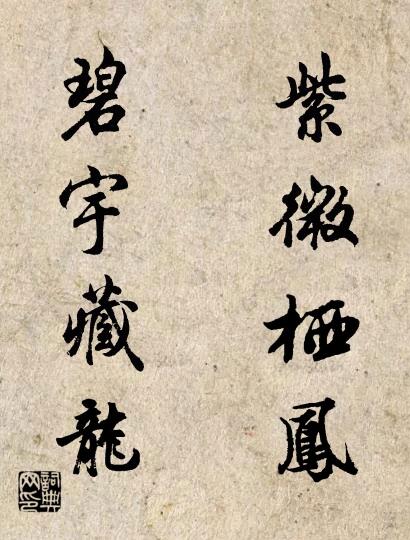 紫微栖鳳
碧宇藏龍
詞典
网印